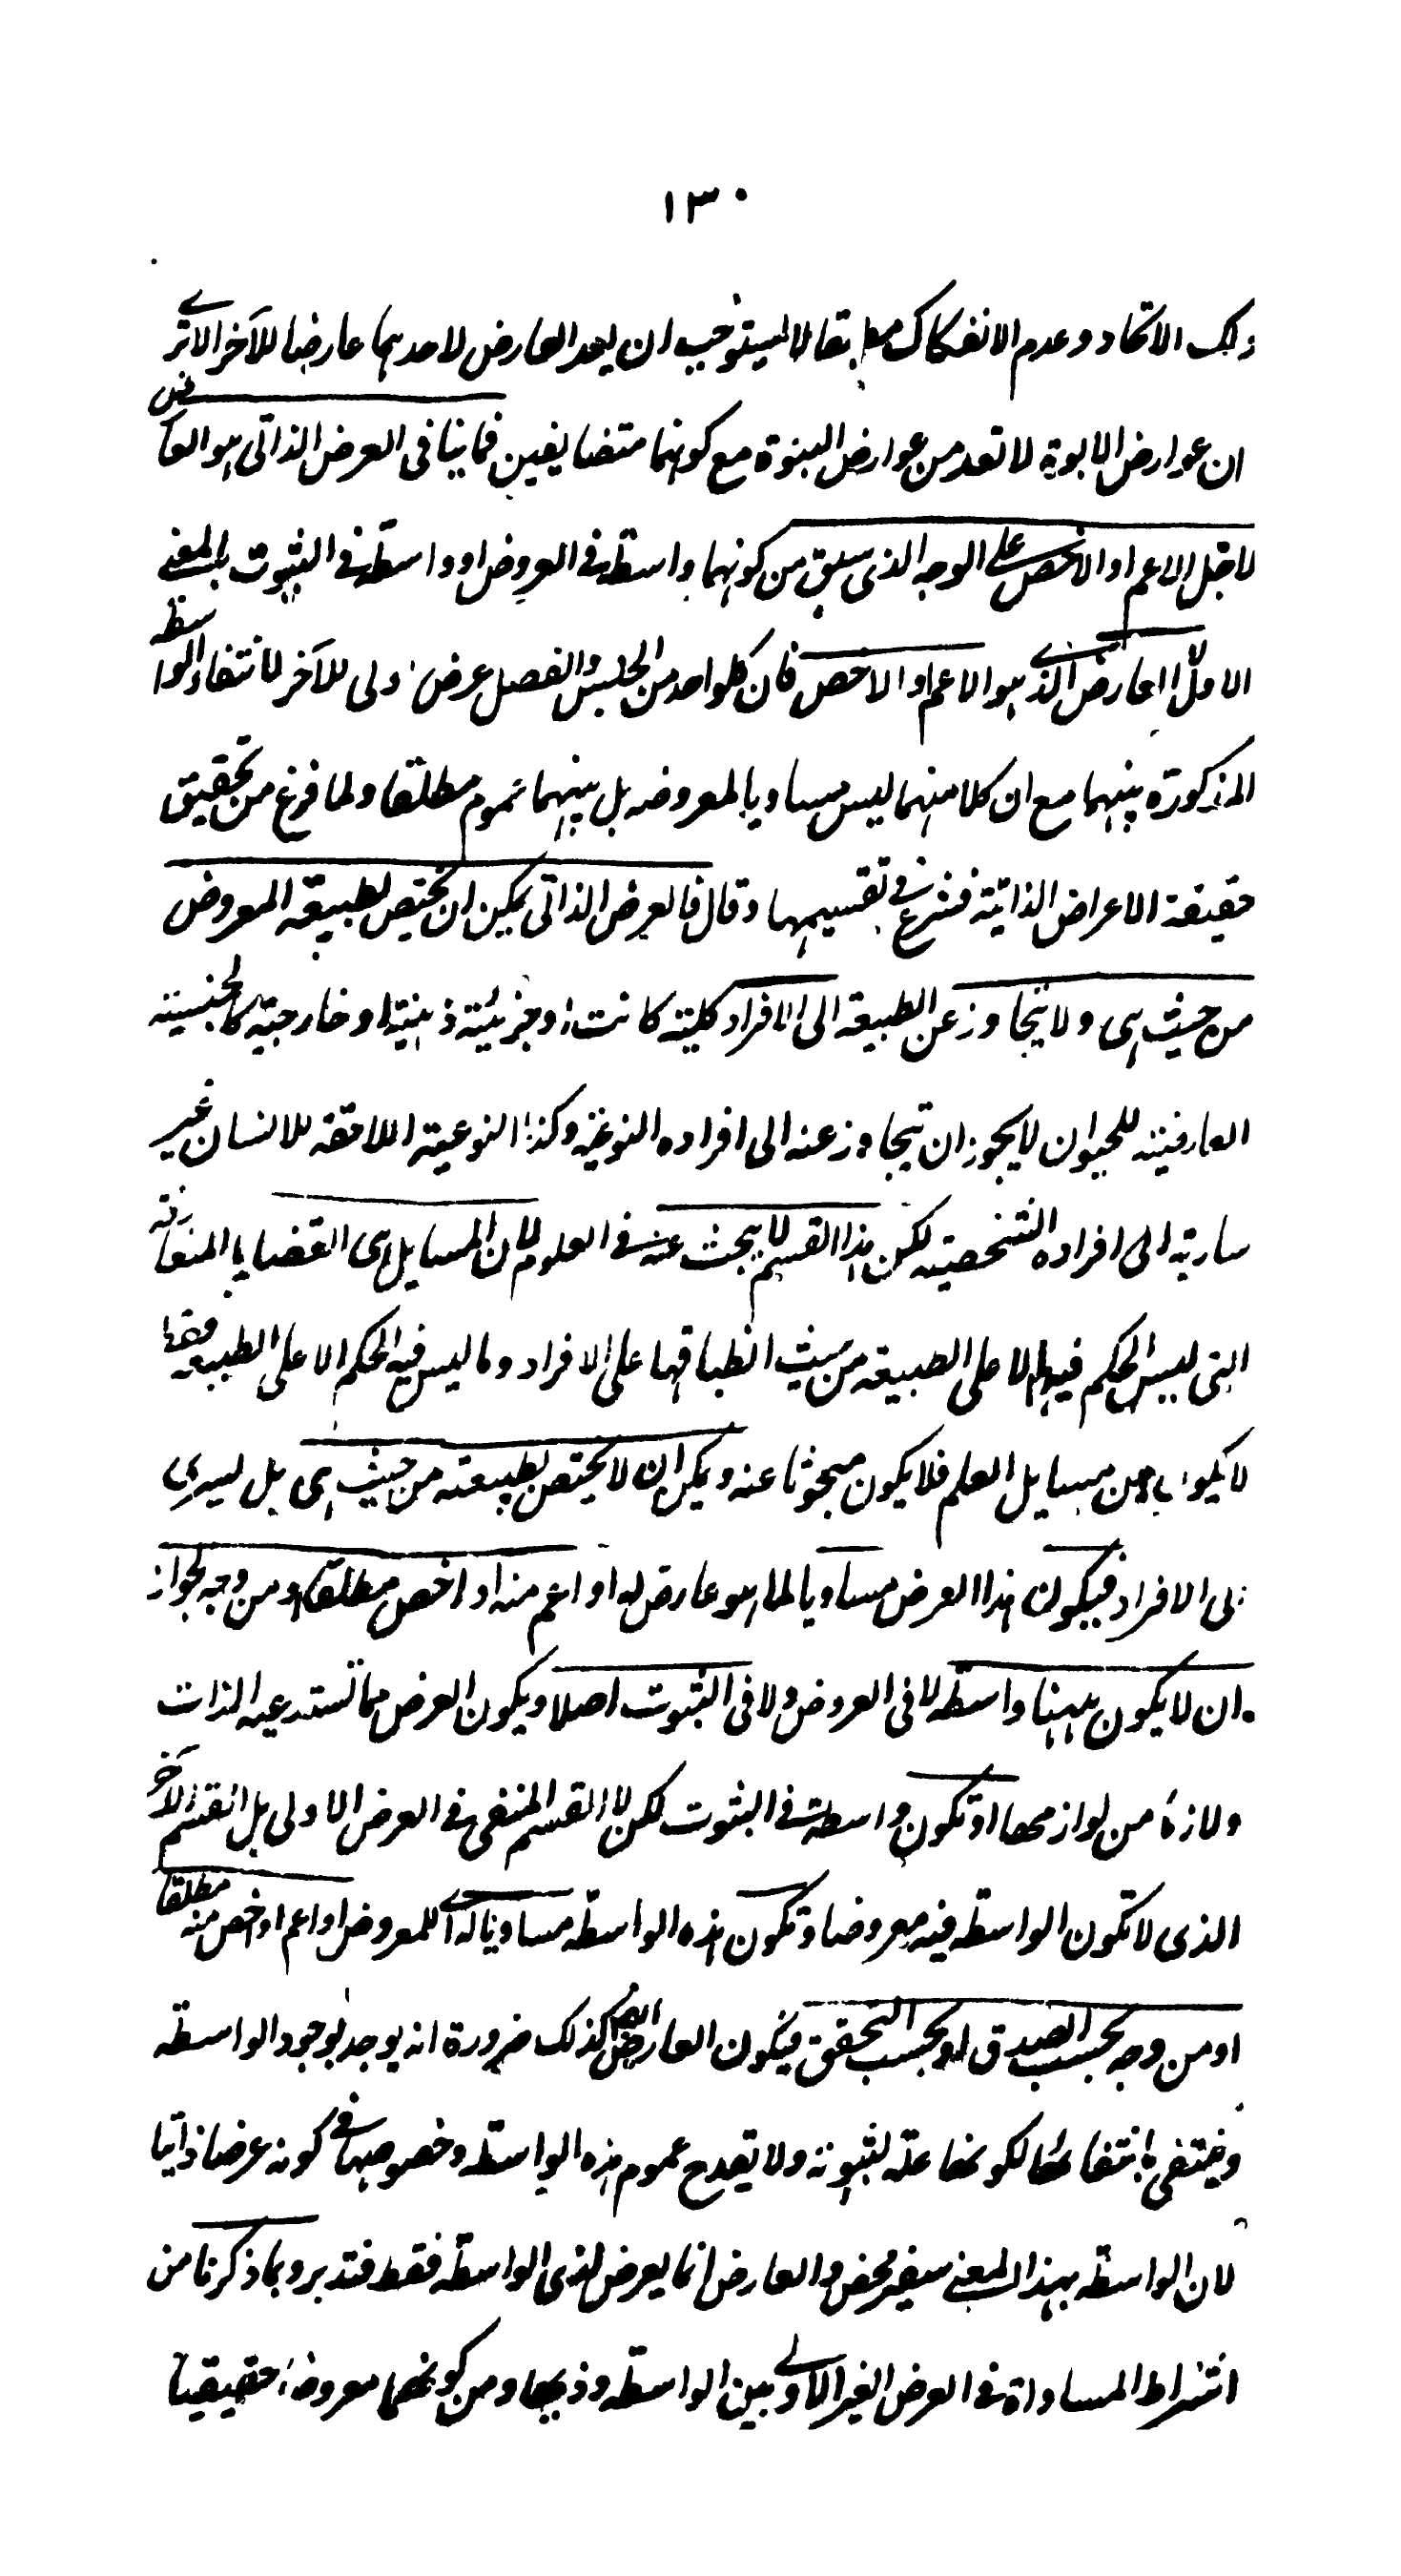 ١٣٠
ذلك الاتحاد وعدم الانفكاك مطابقا لا يستوجب ان يعد العارض لاحدهما عارضا للآخر الا ترى
ان عوارض الابوة لا تعد من عوارض البنوة مع كونهما متضايفين فما ينافى العرض الذاتى هو العارض
لاجل الاعم او الاخص على الوجه الذى سبق من كونهما واسطة فى العروض او واسطة فى الثبوت بالمعنى
الاول لا العارض الذى هو الاعم او الاخص فان كلواحد من الجنس والفصل عرض اولى للآخر لانتفاء الواسطة
المذكورة بينهما مع ان كلا منهما ليس مساويا لمعروضه بل بينهما عموم مطلقا ولما فرغ من تحقيق
حقيقة الاعراض الذاتية فشرع فى تقسيمها وقال فالعرض الذاتى يمكن ان يختص لطبيعة المعروض
من حيث هى ولا يتجاوز عن الطبيعة الى الافراد كلية كانت او جزئية ذهنية او خارجية كالجنسية
العارضية للحيوان لا يجوز ان يتجاوز عنه الى افراده النوعية وكذا النوعية اللاحقة للانسان غير
سارية الى افراده الشخصية لكن هذا القسم لا يبحث عنه فى العلوم لان المسايل هى القضايا المتعارفة
التى ليس الحكم فيها الا على الطبيعة من حيث انطباقها على الافراد وما ليس فيه الحكم الا على الطبيعة فقط
لا يكون من مسايل العلم فلا يكون مبحوثا عنه ويمكن ان لا يختص بطبيعته من حيث هى بل يسرى
الى الافراد فيكون هذا العرض مساويا لما هو عارض له او اعم منه او اخص مطلقا او من وجه لجواز
ان لا يكون ههنا واسطة لا فى العروض ولا فى الثبوت اصلا ويكون العرض مما تستدعيه الذات
ولازم من لوازمها او تكون واسطة فى الثبوت لكن لا القسم المنفى فى العرض الاولى بل القسم الآخر
الذى لا تكون الواسطة فيه معروضا وتكون هذه الواسطة مساوياله اى للمعروض او اعم او اخص منه مطلقا
او من وجه بحسب الصدق او بحسب التحقق فيكون العارض ايضا كذلك ضرورة انه يوجد بوجود الواسطة
وينتفى بانتفائها لكونها علة لثبوته ولا يقدح عموم هذه الواسطة وخصوصها فى كونه عرضا ذاتيا
لان الواسطة بهذا المعنى سفير محض والعارض انما يعرض لذى الواسطة فقط فتدبر وبما ذكرنا من
اشتراط المساواة فى العرض الغير الاولى بين الواسطة وذيها ومن كونهما معروضا حقيقيا